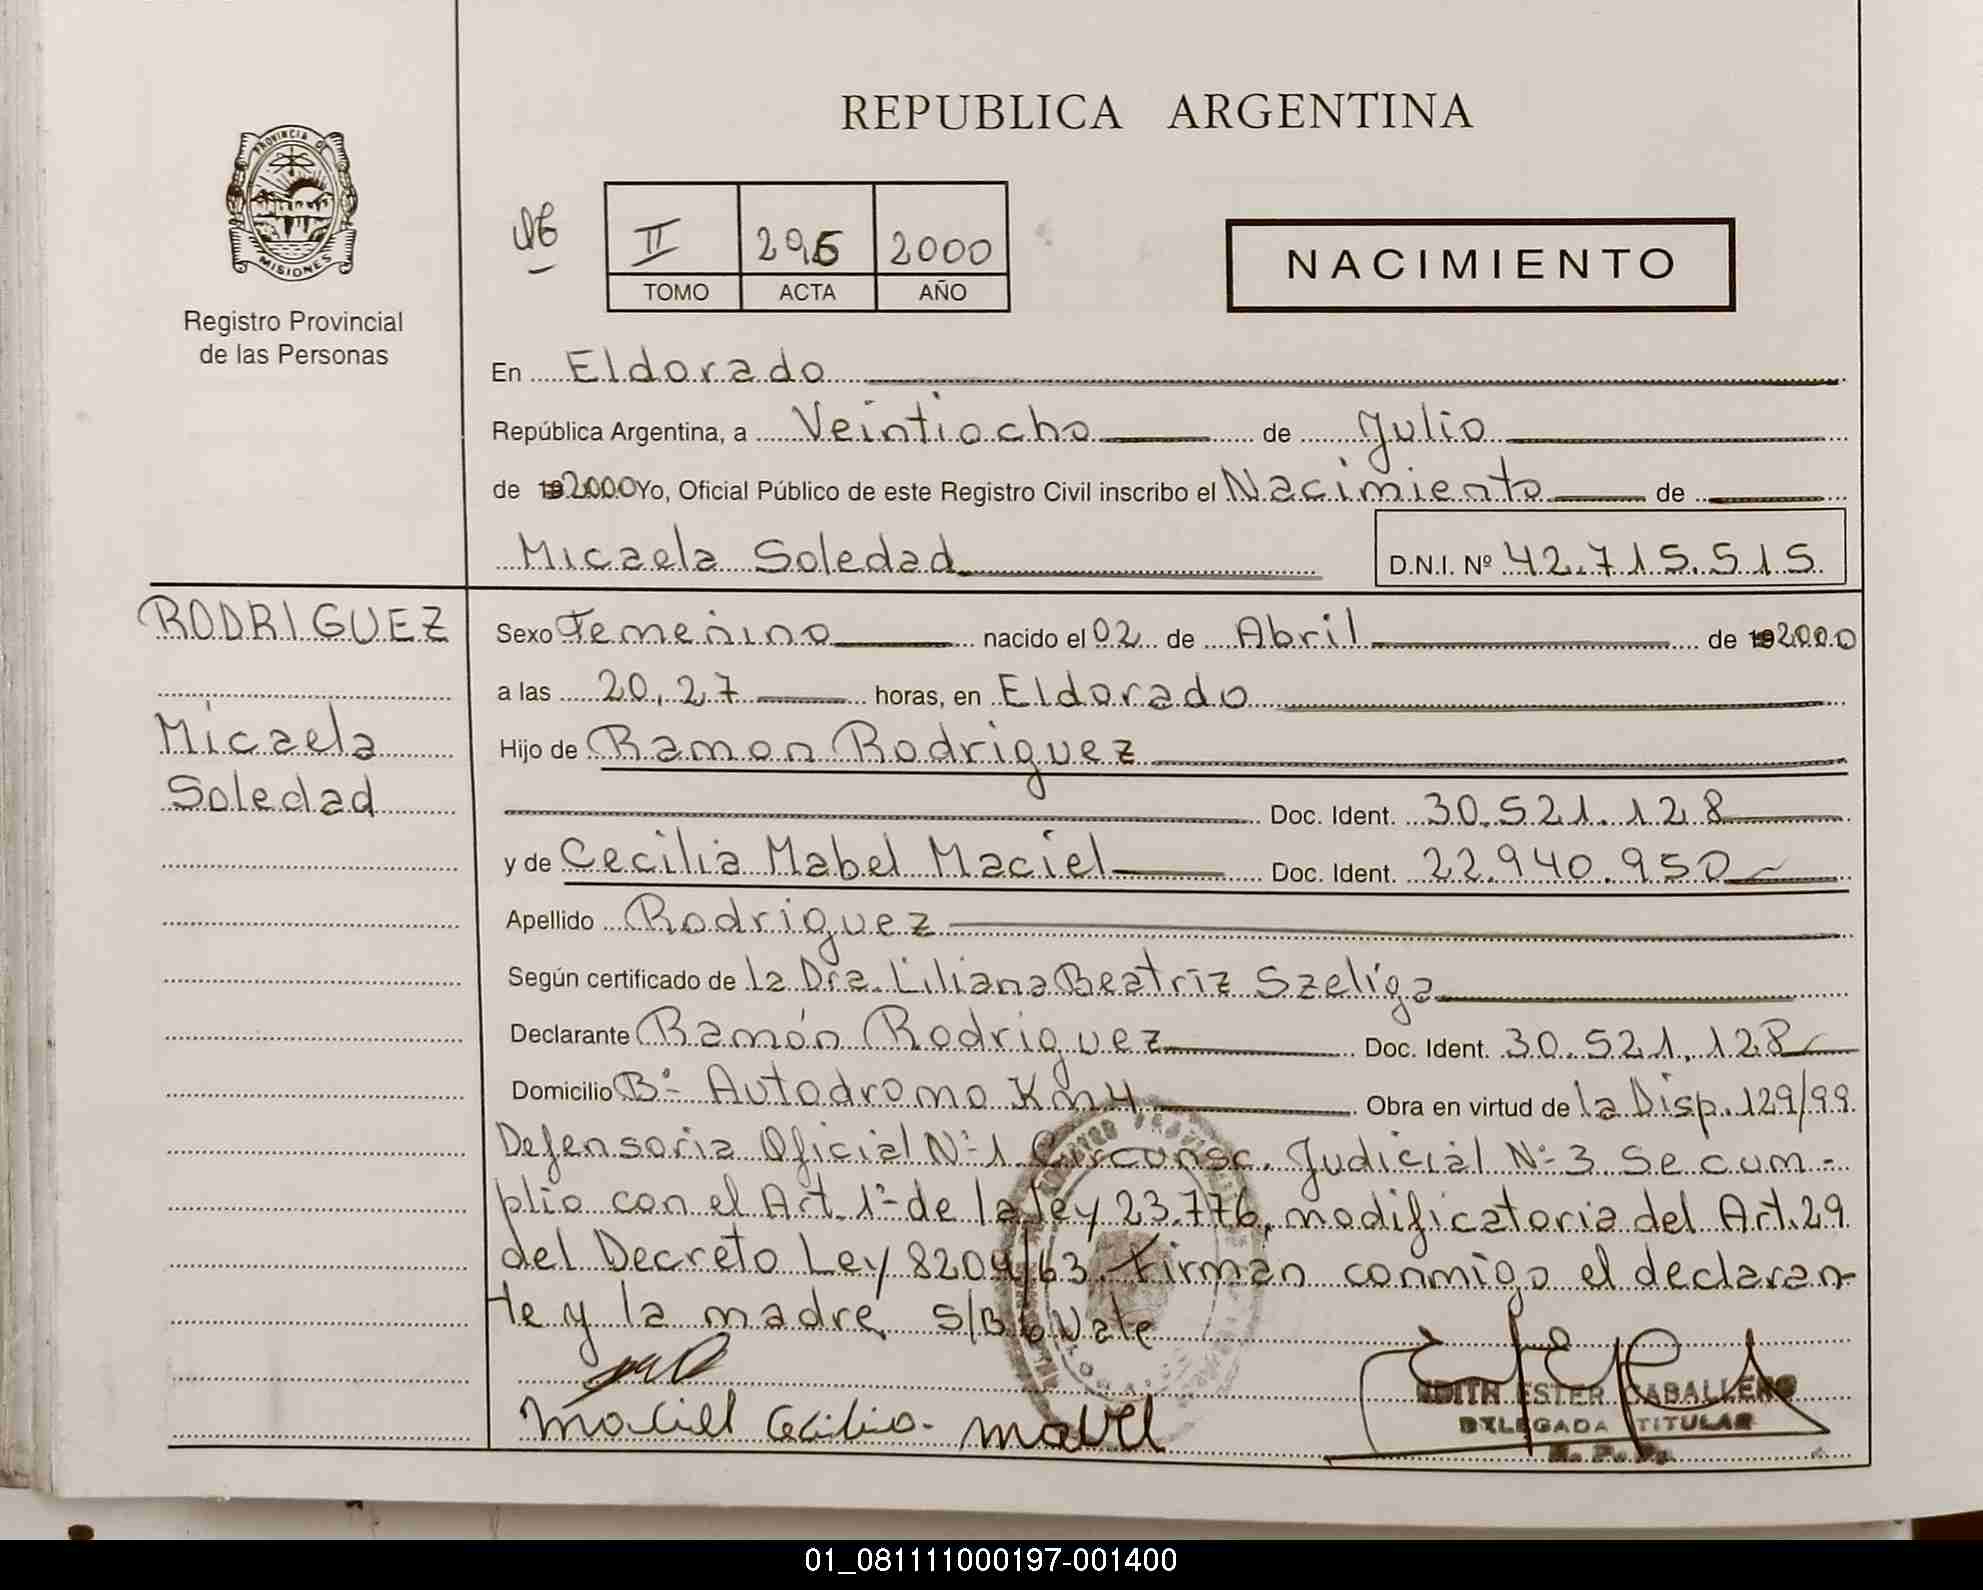 REPUBLICA ARGENTINA
PROVINCIA DE
MISIONES
Registro Provincial
de las Personas
II 296 2000
TOMO ACTA AÑO
NACIMIENTO
En Eldorado
República Argentina, a Veintiocho de Julio
de 192000 Yo, Oficial Público de este Registro Civil inscribo el Nacimiento de
Micaela Soledad D.N.I. Nº 42.715.515
RODRIGUEZ
Micaela
Soledad
Sexo Femenino nacido el 02 de Abril de 192000
a las 20,27 horas, en Eldorado
Hijo de Ramon Rodriguez
Doc. Ident. 30.521.128
y de Cecilia Mabel Maciel Doc. Ident. 22.940.950
Apellido Rodriguez
Según certificado de la Dra. Liliana Beatriz Szeliga
Declarante Ramón Rodriguez Doc. Ident. 30.521.128
Domicilio Bº Autodromo Km 4 Obra en virtud de la Disp. 129/99
Defensoria Oficial Nº 1 Circunsc. Judicial Nº 3. Se cum-
plio con el Art. 1º de la ley 23.776, modificatoria del Art. 29
del Decreto Ley 8204/63. Firman conmigo el declaran-
te y la madre. S/B 6 Vale
Maciel Cecilia Mabel
EDITH ESTER CABALLERO
DELEGADA TITULAR
R. P. P.
01_081111000197-001400